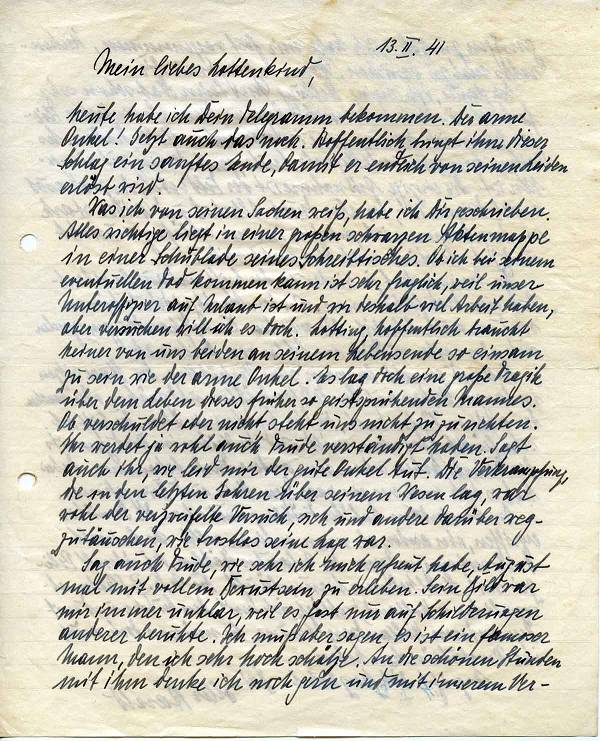 13. II. 41
Mein liebes Lottenkind,
heute habe ich Dein Telegramm bekommen. Der arme
Onkel! Jetzt auch das noch. Hoffentlich bringt ihm dieser
Schlag ein sanftes Ende, damit er endlich von seinen Leiden
erlöst wird.
Was ich von seinen Sachen weiß, habe ich Dir geschrieben.
Alles wichtige liegt in einer großen schwarzen Aktenmappe
in einer Schublade seines Schreibtisches. Ob ich bei seinem
eventuellen Tod kommen kann ist sehr fraglich, weil unser
Unteroffizier auf Urlaub ist und wir deshalb viel Arbeit haben,
aber versuchen will ich es doch. Lotting, hoffentlich braucht
keiner von uns beiden an seinem Lebensende so einsam
zu sein wie der arme Onkel. Es lag doch eine große Tragik
über dem Leben dieses früher so geistsprühenden Mannes.
Ob verschuldet oder nicht steht uns nicht zu zu richten.
Ihr werdet ja wohl auch Trude verständigt haben. Sagt
auch ihr, wie leid mir der gute Onkel tut. Die Verkrampfung,
die in den letzten Jahren über seinem Wesen lag, war
wohl der verzweifelte Versuch, sich und andere darüber weg-
zutäuschen, wie trostlos seine Lage war.
Sag auch Trude, wie sehr ich mich gefreut habe, August
mal mit vollem Bewußtsein zu erleben. Sein Bild war
mir immer unklar, weil es fast nur auf Schilderungen
anderer beruhte. Ich muß aber sagen, es ist ein famoser
Mann, den ich sehr hoch schätze. An die schönen Stunden
mit ihm denke ich noch gern und mit innerem Ver-